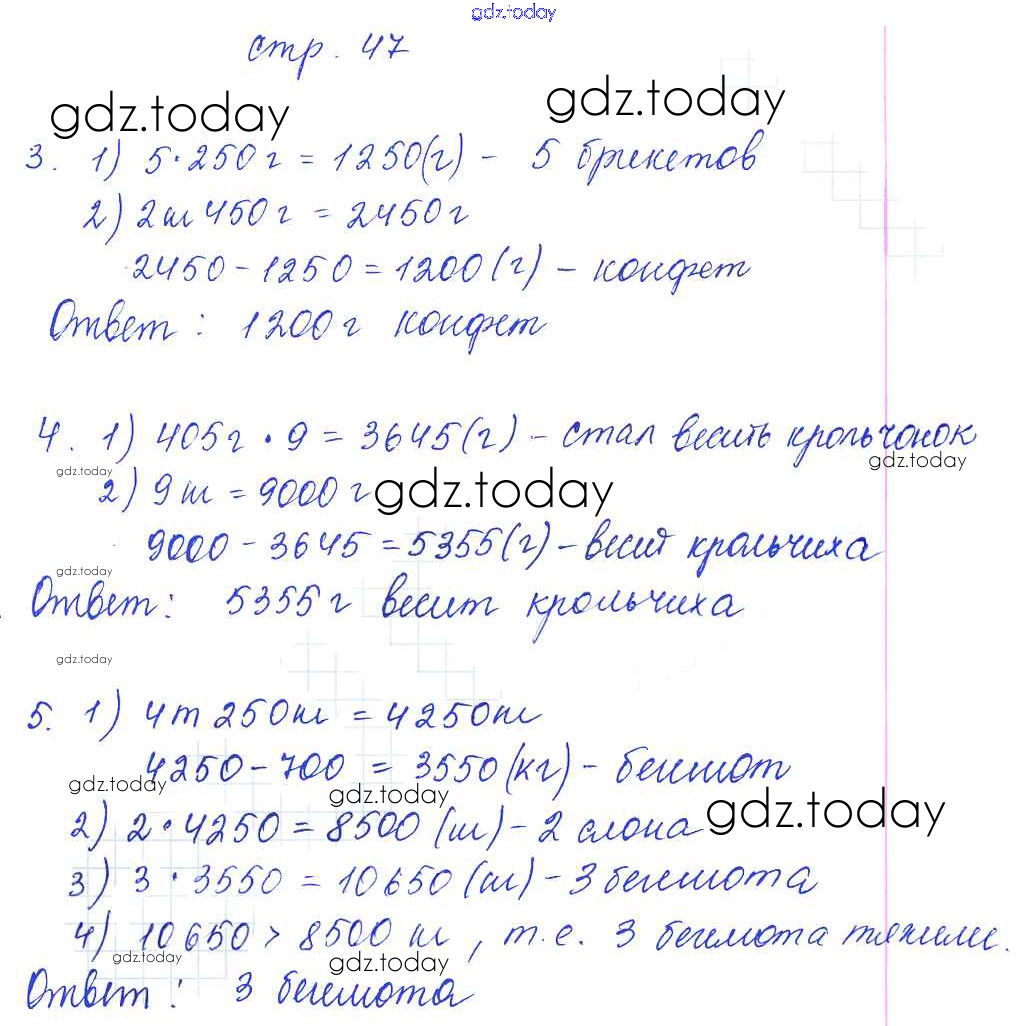 gdz.today
стр. 47
gdz.today gdz.today
3. 1) 5·250г = 1250(г) - 5 брикетов
2) 2кг 450г = 2450г
2450 - 1250 = 1200(г) - конфет
Ответ: 1200г конфет
4. 1) 405г · 9 = 3645(г) - стал весить крольчонок
gdz.today gdz.today
2) 9кг = 9000г gdz.today
9000 - 3645 = 5355(г) - весит крольчиха
gdz.today
Ответ: 5355г весит крольчиха
gdz.today
5. 1) 4т 250кг = 4250кг
4250 - 700 = 3550(кг) - бегемот
gdz.today gdz.today gdz.today
2) 2·4250 = 8500 (кг) - 2 слона
3) 3·3550 = 10650(кг) - 3 бегемота
4) 10650 > 8500 кг, т.е. 3 бегемота тяжелее.
gdz.today gdz.today
Ответ: 3 бегемота